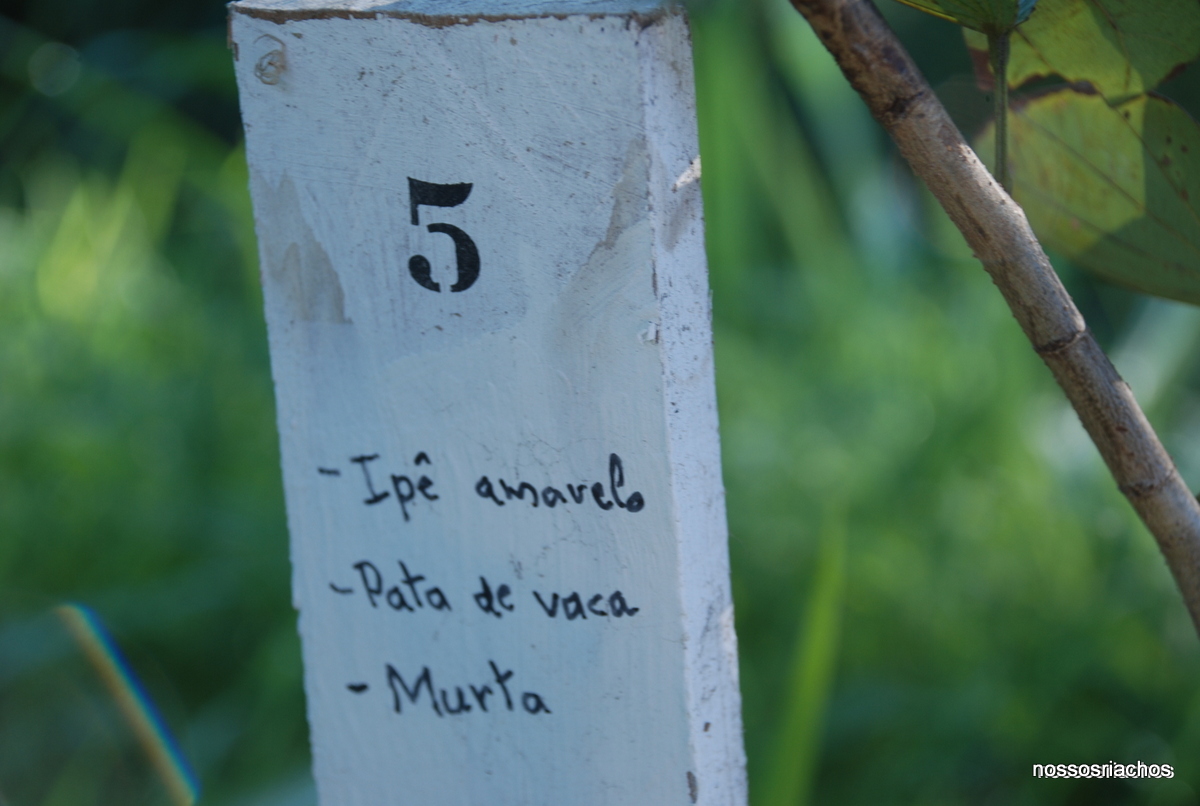 5
- Ipê amarelo
- Pata de vaca
- Murta
nossosriachos